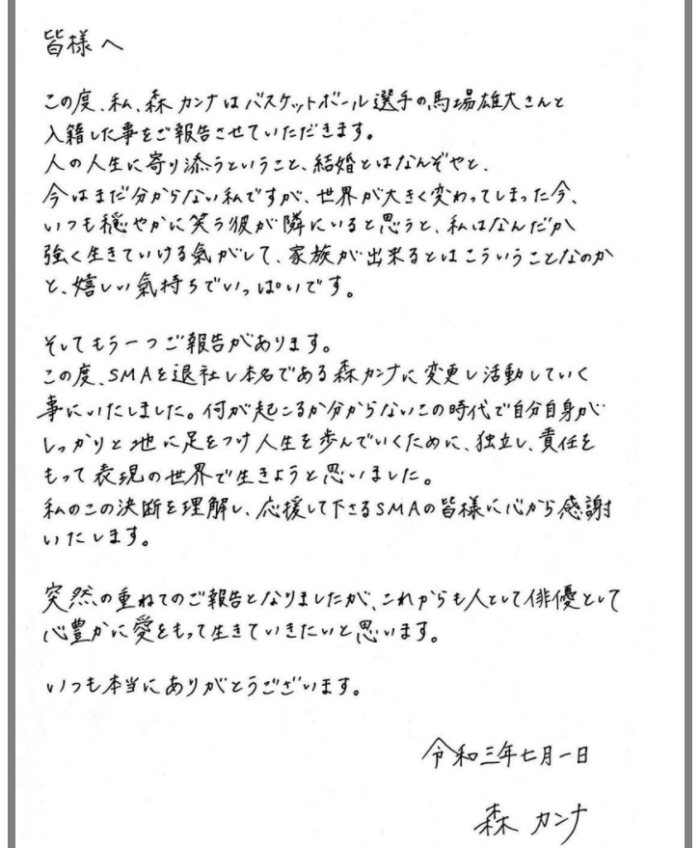 皆様へ
この度、私、森カンナはバスケットボール選手の馬場雄大さんと
入籍した事をご報告させていただきます。
人の人生に寄り添うということ、結婚とはなんぞやと、
今はまだ分からない私ですが、世界が大きく変わってしまった今、
いつも穏やかに笑う彼が隣にいると思うと、私はなんだか
強く生きていける気がして、家族が出来るとはこういうことなのか
と、嬉しい氣持ちでいっぱいです。
そしてもう一つご報告があります。
この度、SMAを退社し本名である森カンナに変更し活動していく
事にいたしました。何が起こるか分からないこの時代で自分自身が
しっかりと地に足をつけ人生を歩んでいくために、独立し、責任を
もって表現の世界で生きようと思いました。
私のこの決断を理解し、応援して下さるSMAの皆様に心から感謝
いたします。
突然の重ねてのご報告となりましたが、これからも人として俳優として
心豊かに愛をもって生きていきたいと思います。
いつも本当にありがとうございます。
令和三年七月一日
森 カンナ